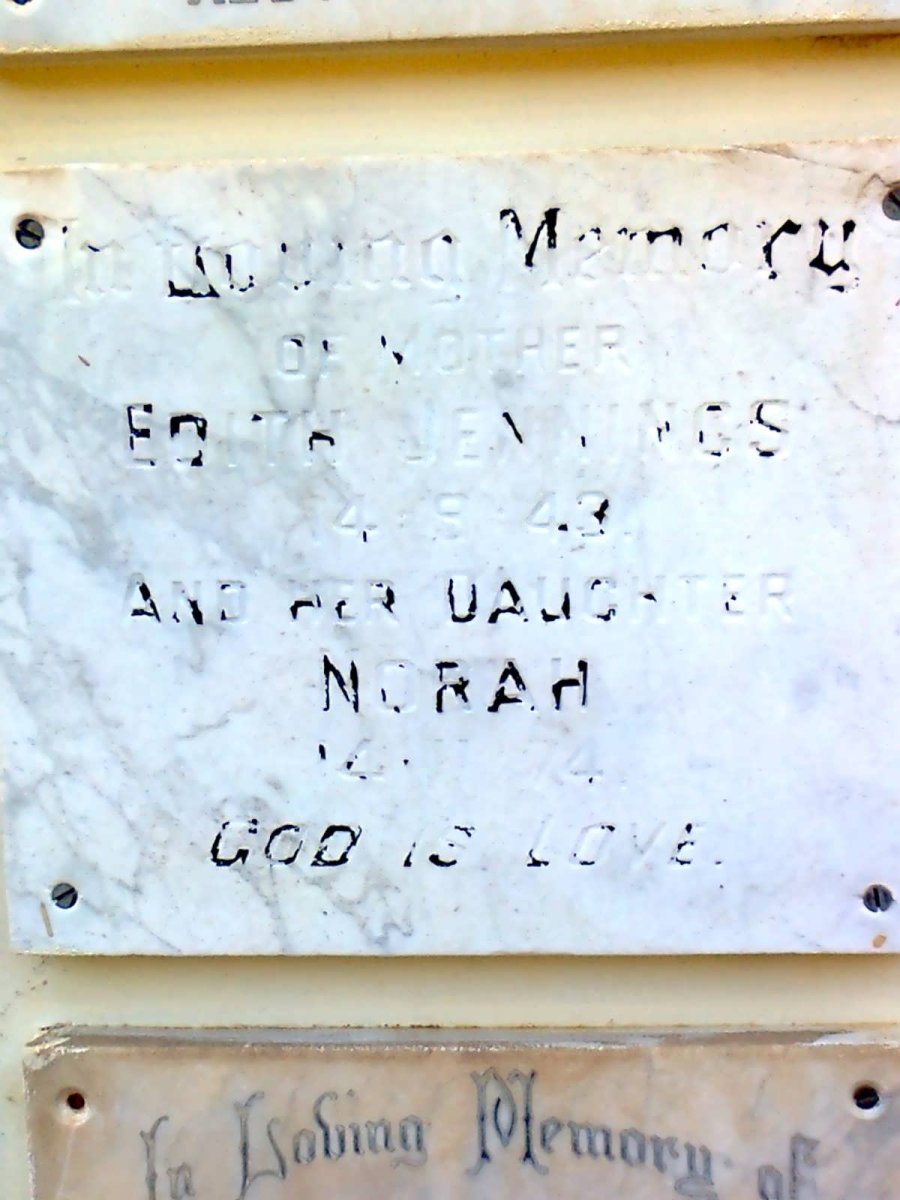 In Loving Memory
OF MOTHER
EDITH JENNINGS
14 · 9 · 43.
AND HER DAUGHTER
NORAH
GOD IS LOVE.
In Loving Memory of